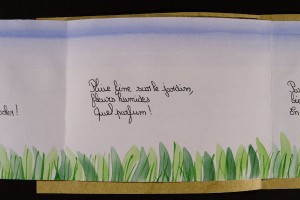 Pluie fine sur le jardin,
fleurs humides
Quel parfum !